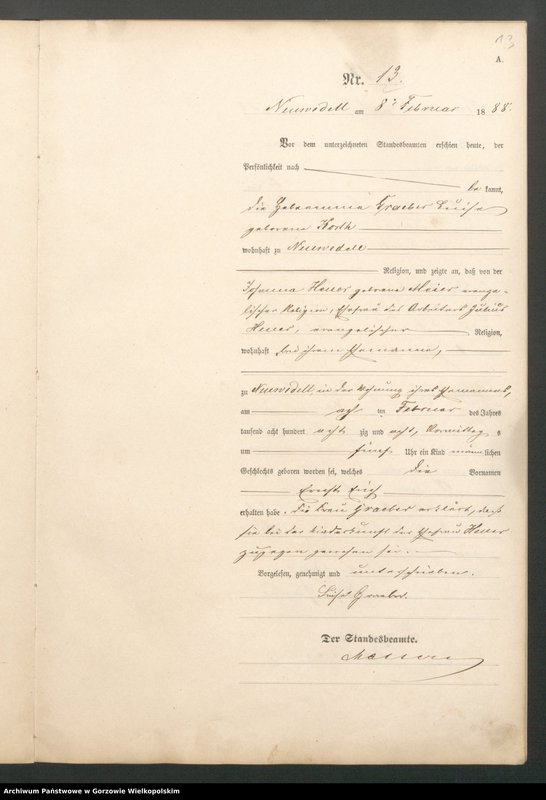 13
A.
Nr. 13.
Neuwedell am 8. Februar 1888.
Vor dem unterzeichneten Standesbeamten erschien heute, der
Persönlichkeit nach
be kannt,
die Hebamme Graeber Luise
geborene Korth
wohnhaft zu Neuwedell
Religion, und zeigte an, daß von der
Johanna geborene Meier evange-
lischer Religion, Ehefrau des Arbeiters Julius
evangelischer Religion,
wohnhaft bei ihrem Ehemanne,
zu Neuwedell, in der Wohnung ihres Ehemannes,
am acht ten Februar des Jahres
tausend acht hundert acht zig und acht, Vormittag s
um fünf Uhr ein Kind männ lichen
Geschlechts geboren worden sei, welches die Vornamen
Erich
erhalten habe. Die Frau Graeber erklärt, daß
sie bei der Niederkunft der Ehefrau
zugegen gewesen sei.
Vorgelesen, genehmigt und unterschrieben.
Luise Graeber.
Der Standesbeamte.
Archiwum Państwowe w Gorzowie Wielkopolskim